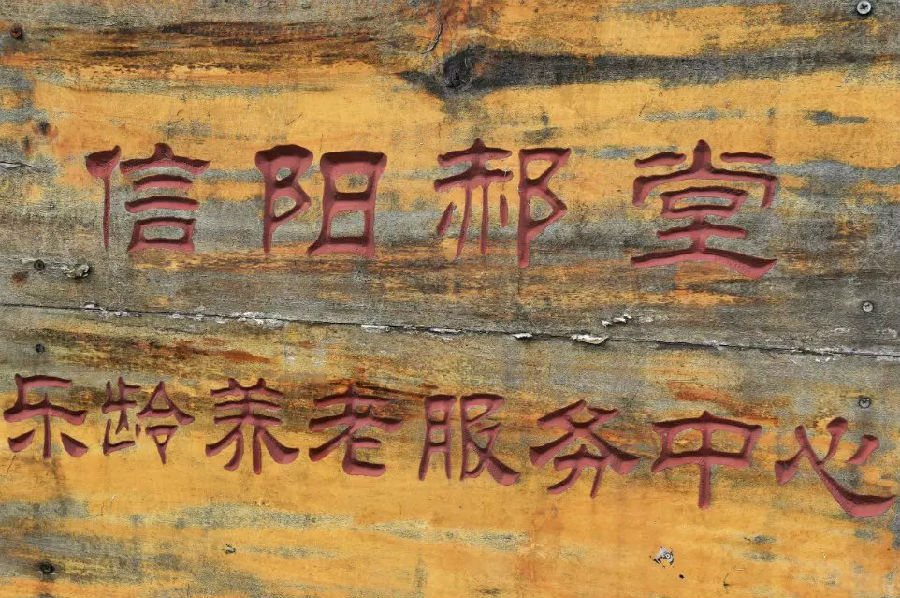 信阳郝堂
乐龄养老服务中心